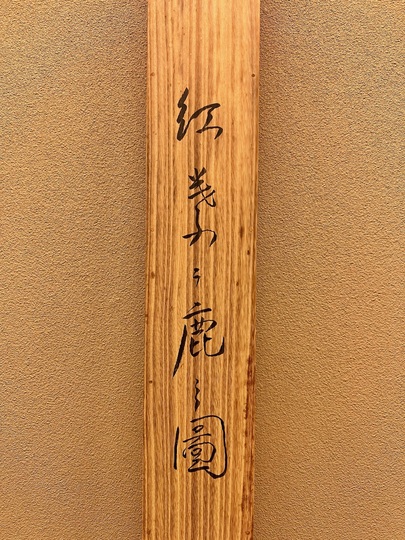 紅葉ニ鹿之圖